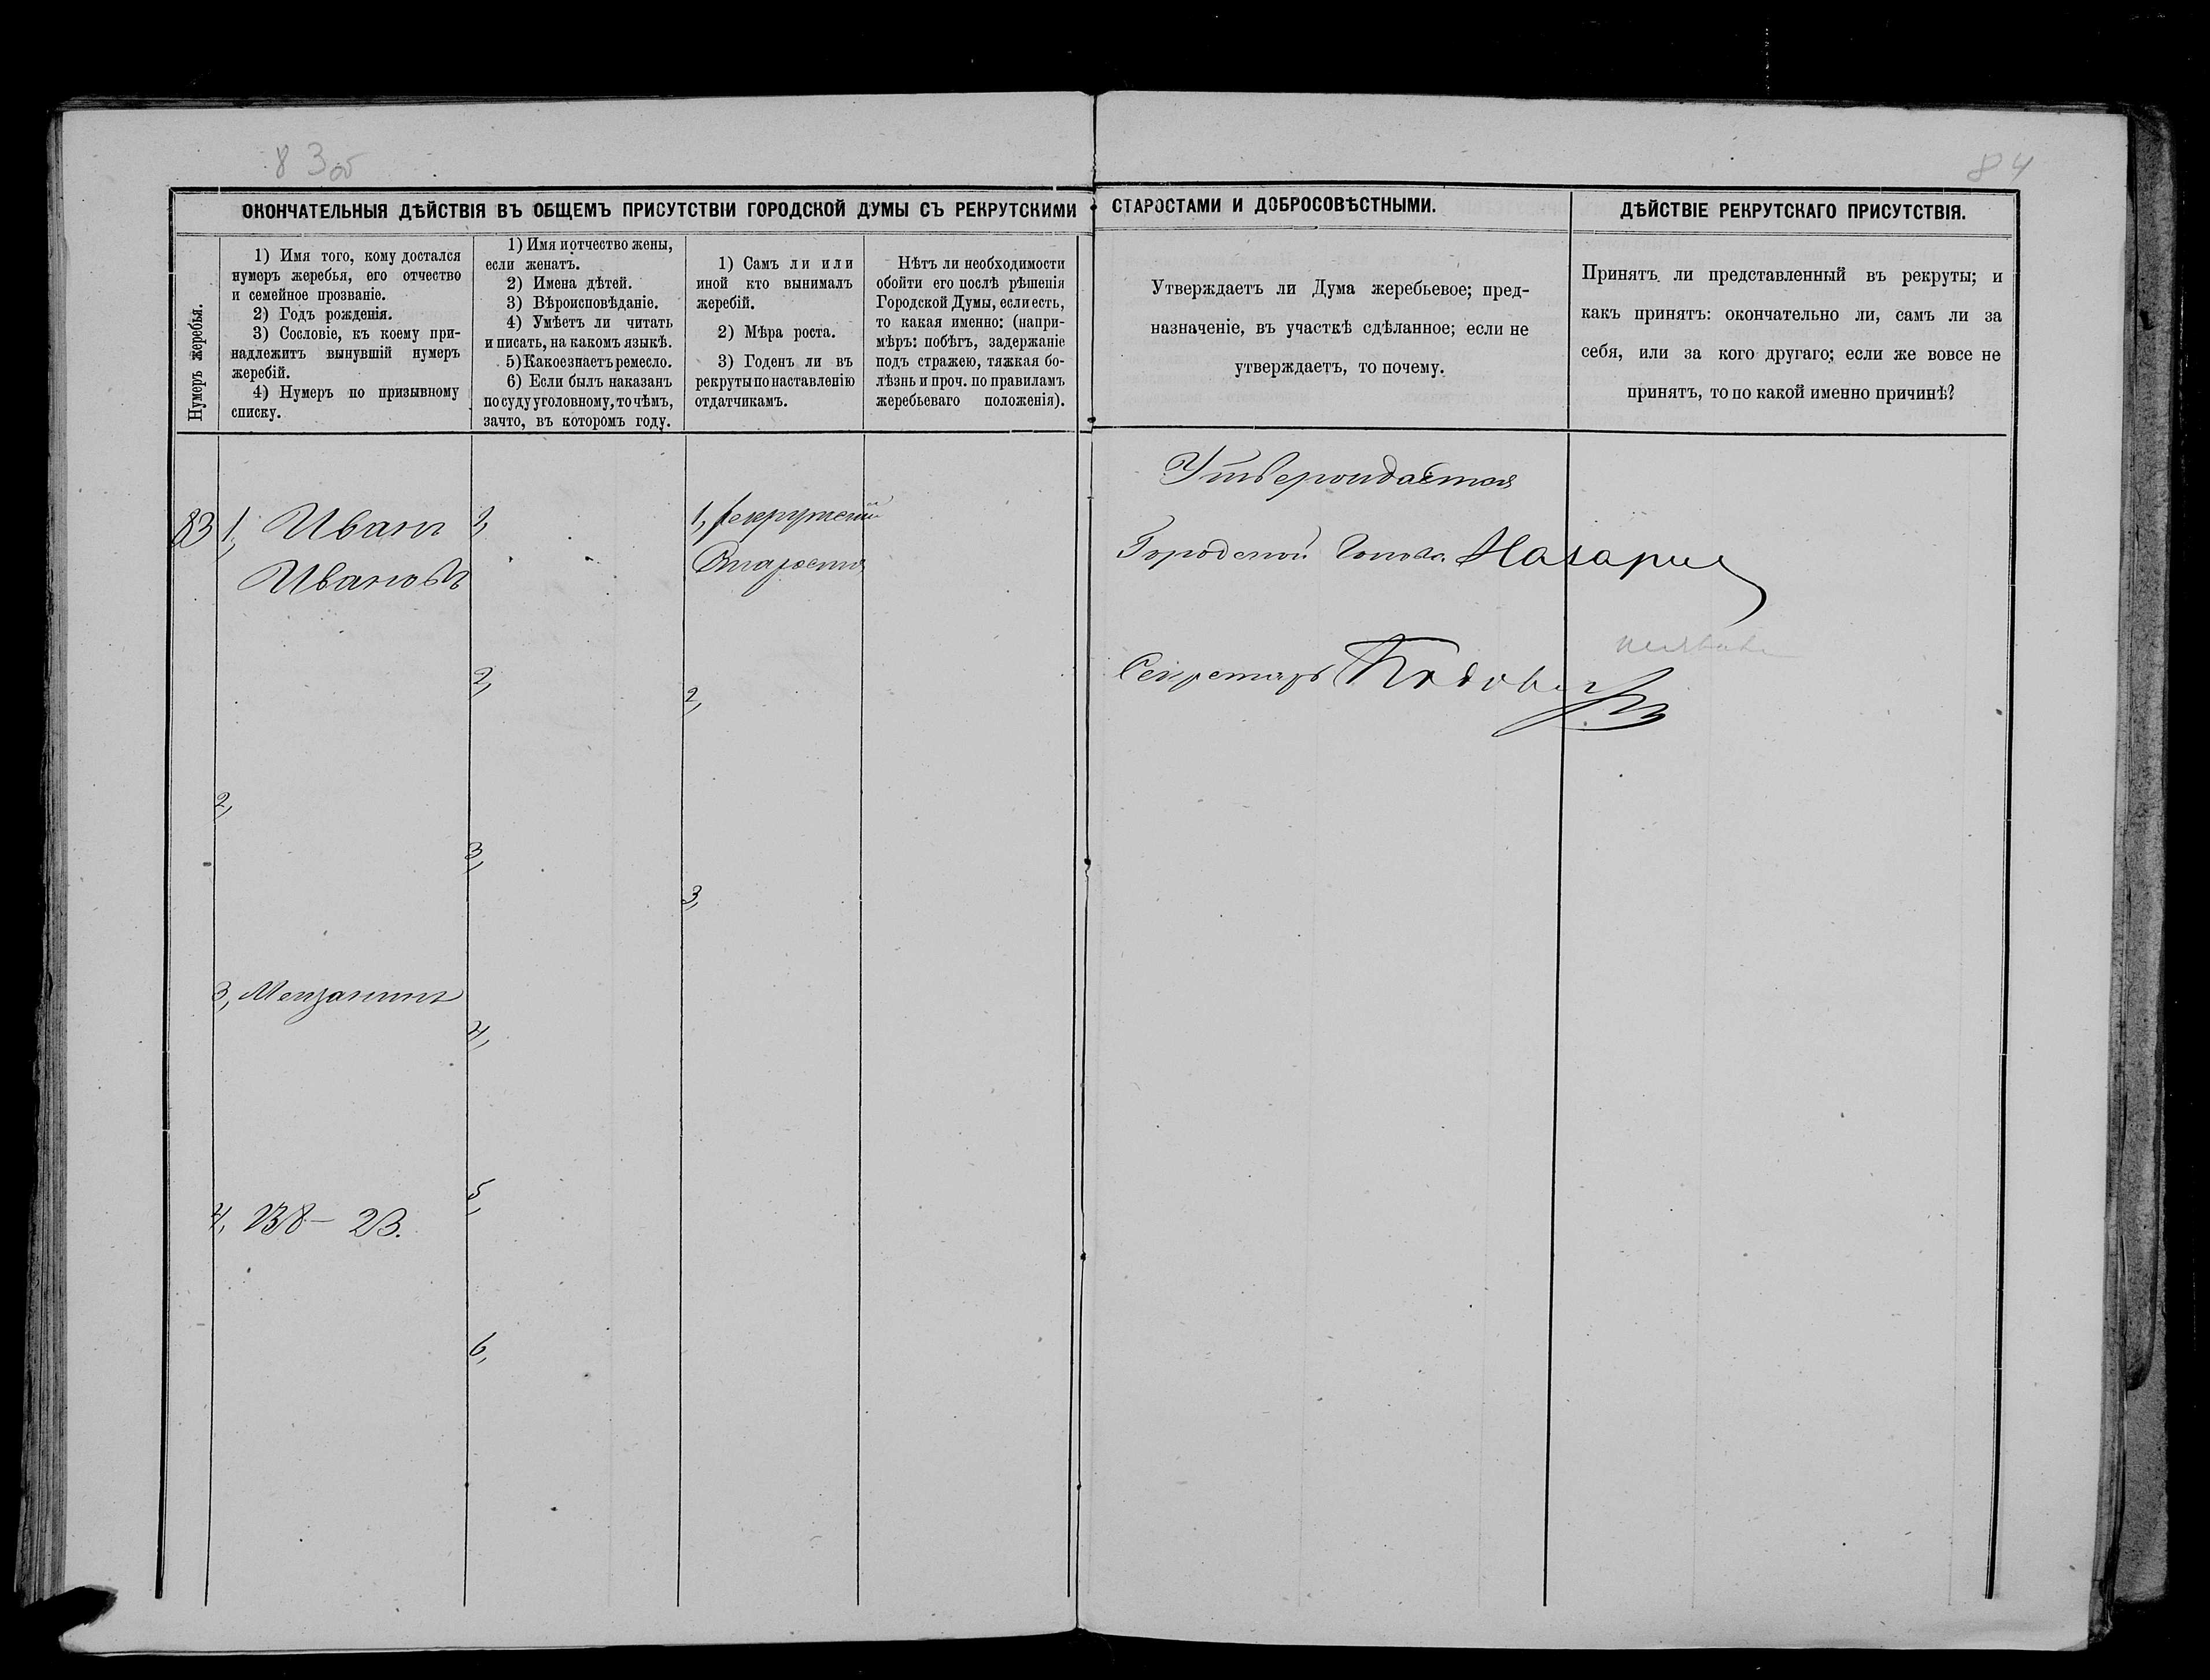 83 об
84
ОКОНЧАТЕЛЬНЫЯ ДѢЙСТВІЯ ВЪ ОБЩЕМЪ ПРИСУТСТВІИ ГОРОДСКОЙ ДУМЫ СЪ РЕКРУТСКИМИ СТАРОСТАМИ И ДОБРОСОВѢСТНЫМИ.
ДѢЙСТВІЕ РЕКРУТСКАГО ПРИСУТСТВІЯ.
Нумеръ жеребья.
1) Имя того, кому достался
нумеръ жеребья, его отчество
и семейное прозваніе.
2) Годъ рожденія.
3) Сословіе, къ коему при-
надлежитъ вынувшій нумеръ
жеребій.
4) Нумеръ по призывному
списку.
1) Имя и отчество жены,
если женатъ.
2) Имена дѣтей.
3) Вѣроисповѣданіе.
4) Умѣетъ ли читать
и писать, на какомъ языкѣ.
5) Какое знаетъ ремесло.
6) Если былъ наказанъ
по суду уголовному, то чѣмъ,
за что, въ которомъ году.
1) Самъ ли или
иной кто вынималъ
жеребій.
2) Мѣра роста.
3) Годенъ ли въ
рекруты по наставленію
отдатчикамъ.
Нѣтъ ли необходимости
обойти его послѣ рѣшенія
Городской Думы, если есть,
то какая именно: (напри-
мѣръ: побѣгъ, задержаніе
подъ стражею, тяжкая бо-
лѣзнь и проч. по правиламъ
жеребьеваго положенія).
Утверждаетъ ли Дума жеребьевое; пред-
назначеніе, въ участкѣ сдѣланное; если не
утверждаетъ, то почему.
Принятъ ли представленный въ рекруты; и
какъ принятъ: окончательно ли, самъ ли за
себя, или за кого другаго; если же вовсе не
принятъ, то по какой именно причинѣ?
83
1, Иванъ
Ивановъ
2,
3, Мещанинъ
4, 138 – 23.
1,
2,
3,
4,
5,
6,
1, Рекрутскій
Староста
2,
3,
Утверждается
Городской Голова
Секретарь